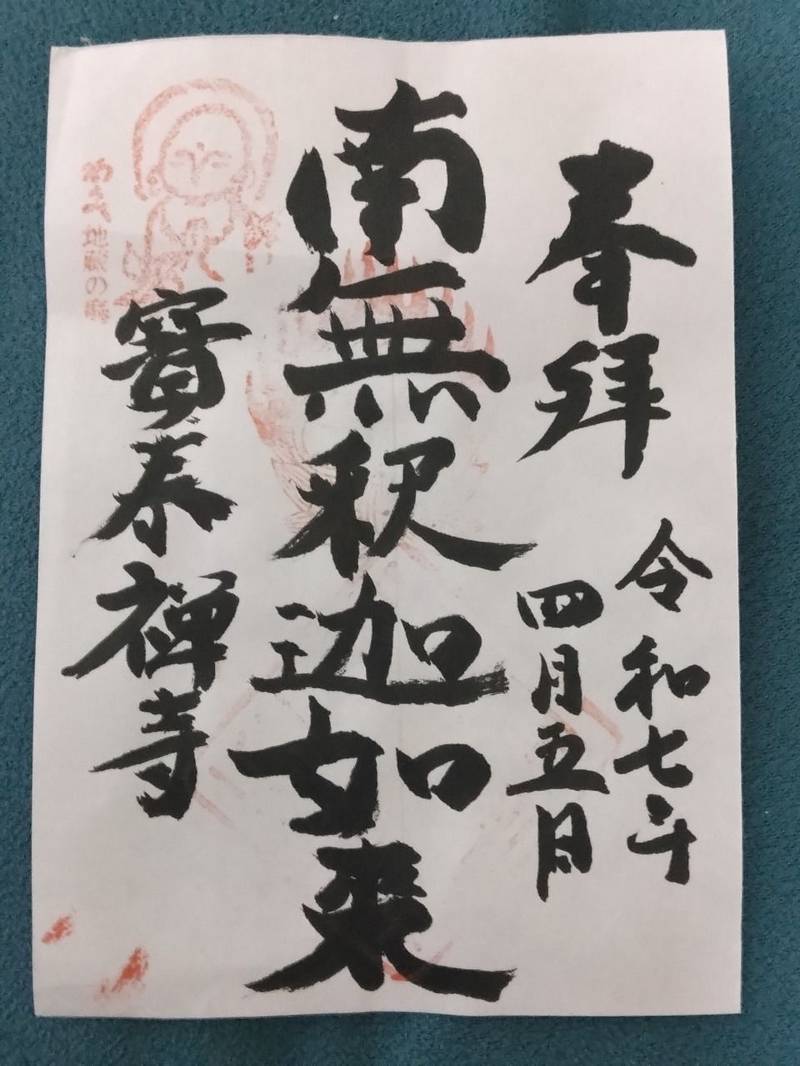 奉拝
令和七年
四月五日
南無釈迦如来
寳泰禅寺
地蔵の寺